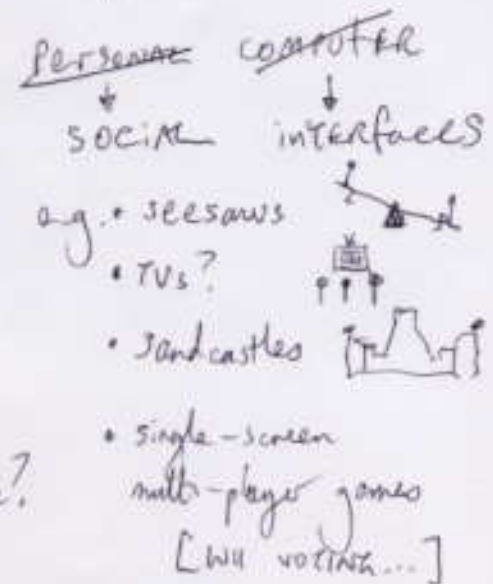 Personal COMPUTER
SOCIAL interfaces
e.g. • seesaws
• TVs?
• sandcastles
• single-screen
?
multi-player games
[WII VOTING...]